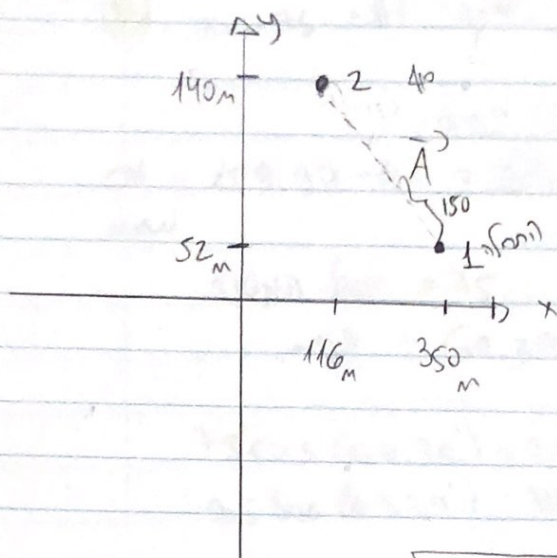 y
140m
2
A
150
52m
1
x
116m
350
m